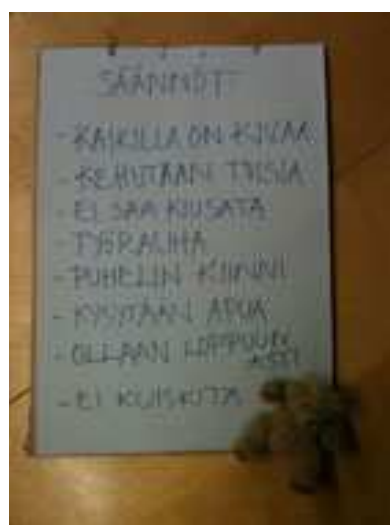 SÄÄNNÖT
- KAIKILLA ON KIVAA
- KEHUTAAN TOISIA
- EI SAA KIUSATA
- TYÖRAUHA
- PUHELIN KIINNI
- KYSYTÄÄN APUA
- OLLAAN LOPPUUN
ASTI
- EI KUISKUTA